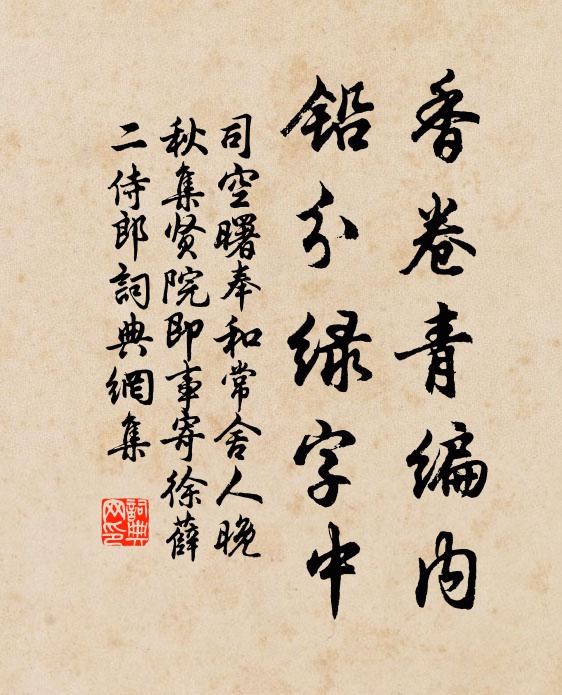 香卷青编内
铅分绿字中
司空曙奉和常舍人晚
秋集贤院即事寄徐薛
二侍郎詞典網集
詞典
网印